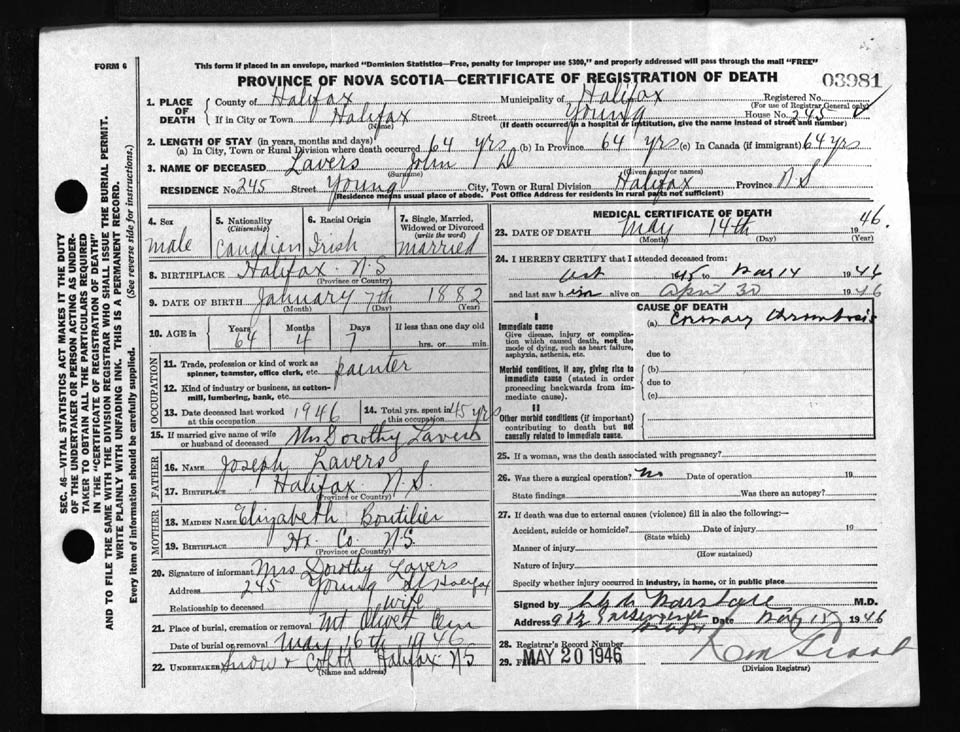 FORM 6
This form if placed in an envelope, marked "Dominion Statistics—Free, penalty for improper use $300," and properly addressed will pass through the mail "FREE"
PROVINCE OF NOVA SCOTIA—CERTIFICATE OF REGISTRATION OF DEATH
03981
1. PLACE OF DEATH
County of Halifax Municipality of Halifax Registered No.
(For use of Registrar General only)
If in City or Town Halifax Street Young House No. 245
(Name) (If death occurred in a hospital or institution, give the name instead of street and number)
2. LENGTH OF STAY (in years, months and days)
(a) In City, Town or Rural Division where death occurred 64 yrs (b) In Province 64 yrs (c) In Canada (if immigrant) 64 yrs
3. NAME OF DECEASED Lavers John D
(Surname) (Given name or names)
RESIDENCE No. 245 Street Young City, Town or Rural Division Halifax Province N S
(Residence means usual place of abode. Post Office Address for residents in rural parts not sufficient)
4. Sex
male
5. Nationality
(Citizenship)
Canadian
6. Racial Origin
Irish
7. Single, Married, Widowed or Divorced
(write the word)
married
8. BIRTHPLACE Halifax N.S
(Province or Country)
9. DATE OF BIRTH January 7th 1882
(Month) (Day) (Year)
10. AGE in Years 64 Months 4 Days 7 If less than one day old
hrs. or min.
OCCUPATION
11. Trade, profession or kind of work as spinner, teamster, office clerk, etc. painter
12. Kind of industry or business, as cotton-mill, lumbering, bank, etc.
13. Date deceased last worked at this occupation 1946
14. Total yrs. spent in this occupation 45 yrs
15. If married give name of wife or husband of deceased Mrs Dorothy Lavers
FATHER
16. NAME Joseph Lavers
17. BIRTHPLACE Halifax N.S.
(Province or Country)
MOTHER
18. MAIDEN NAME Elizabeth Boutilier
19. BIRTHPLACE Hx. Co. N.S
(Province or Country)
20. Signature of informant Mrs Dorothy Lavers
Address 245 Young St Halifax
Relationship to deceased wife
21. Place of burial, cremation or removal Mt Olivet Cem
Date of burial or removal May 16th 1946
22. UNDERTAKER Snow & Co Halifax NS
(Name and address)
MEDICAL CERTIFICATE OF DEATH
23. DATE OF DEATH May 14th 1946
(Month) (Day) (Year)
24. I HEREBY CERTIFY that I attended deceased from:
to 14 1946
and last saw him alive on April 30 1946
CAUSE OF DEATH
I
Immediate cause
Give disease, injury or complication which caused death, not the mode of dying, such as heart failure, asphyxia, asthenia, etc.
(a) Coronary thrombosis
due to
Morbid conditions, if any, giving rise to immediate cause (stated in order proceeding backwards from immediate cause).
(b)
due to
(c)
II
Other morbid conditions (if important) contributing to death but not causally related to immediate cause.
25. If a woman, was the death associated with pregnancy?
26. Was there a surgical operation? No Date of operation 19
State findings Was there an autopsy?
27. If death was due to external causes (violence) fill in also the following:—
Accident, suicide or homicide? Date of injury 19
(State which)
Manner of injury
(How sustained)
Nature of injury
Specify whether injury occurred in industry, in home, or in public place
Signed by Marshall M.D.
Address Date May 15 1946
28. Registrar's Record Number
29. MAY 20 1946
(Division Registrar)
SEC. 46—VITAL STATISTICS ACT MAKES IT THE DUTY
OF THE UNDERTAKER OR PERSON ACTING AS UNDER-
TAKER TO OBTAIN ALL THE PARTICULARS REQUIRED
IN THE "CERTIFICATE OF REGISTRATION OF DEATH"
AND TO FILE THE SAME WITH THE DIVISION REGISTRAR WHO SHALL ISSUE THE BURIAL PERMIT.
WRITE PLAINLY WITH UNFADING INK. THIS IS A PERMANENT RECORD.
Every item of information should be carefully supplied. (See reverse side for instructions.)